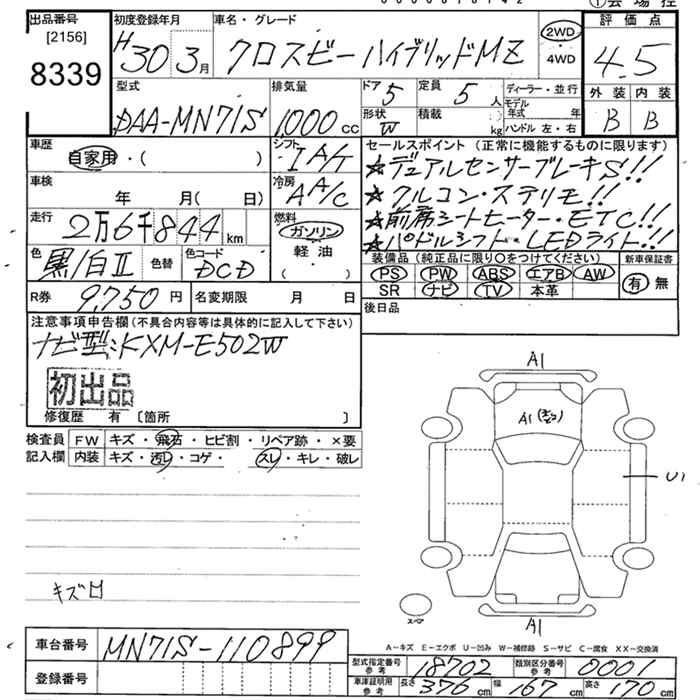 出品番号 初度登録年月 車名・グレード 評価点
[2156] H30 3月 クロスビー ハイブリッドMZ 2WD 4.5
8339 4WD
型式 排気量 ドア 5 定員 5人 ディーラー・並行 外装 内装
DAA-MN71S 1,000cc 形状 W 積載 kg モデル年式 年 B B
ハンドル 左・右
車歴 自家用・( ) シフト IA/T セールスポイント (正常に機能するものに限ります)
★デュアルセンサーブレーキS!!
車検 年 月(日) 冷房 AA/C ★クルコン・ステリモ!!
走行 2万6千844km 燃料 ガソリン ★前席シートヒーター・ETC!!
軽油 ★パドルシフト・LEDライト!!
色 黒/白II 色替 色コード DCD 装備品 (純正品に限り○をつけてください) 新車保証書
PS PW ABS エアB AW 有 無
R券 9,750円 名変期限 月 日 SR ナビ TV 本革
後日品
注意事項申告欄 (不具合内容等は具体的に記入して下さい)
ナビ型:KXM-E502W
初出品
修復歴 有 [箇所 ]
A1
A1
検査員 FW キズ・飛石・ヒビ割・リペア跡・×要
記入欄 内装 キズ・汚レ・コゲ・ スレ・キレ・破レ
U1
キズ
スペア
A1
A-キズ E-エクボ U-凹み W-補修跡 S-サビ C-腐食 XX-交換済
車台番号 MN71S-110899
型式指定番号 参考 18702 類別区分番号 参考 0001
登録番号 車庫証明用 参考 長さ 376cm 幅 167cm 高さ 170cm